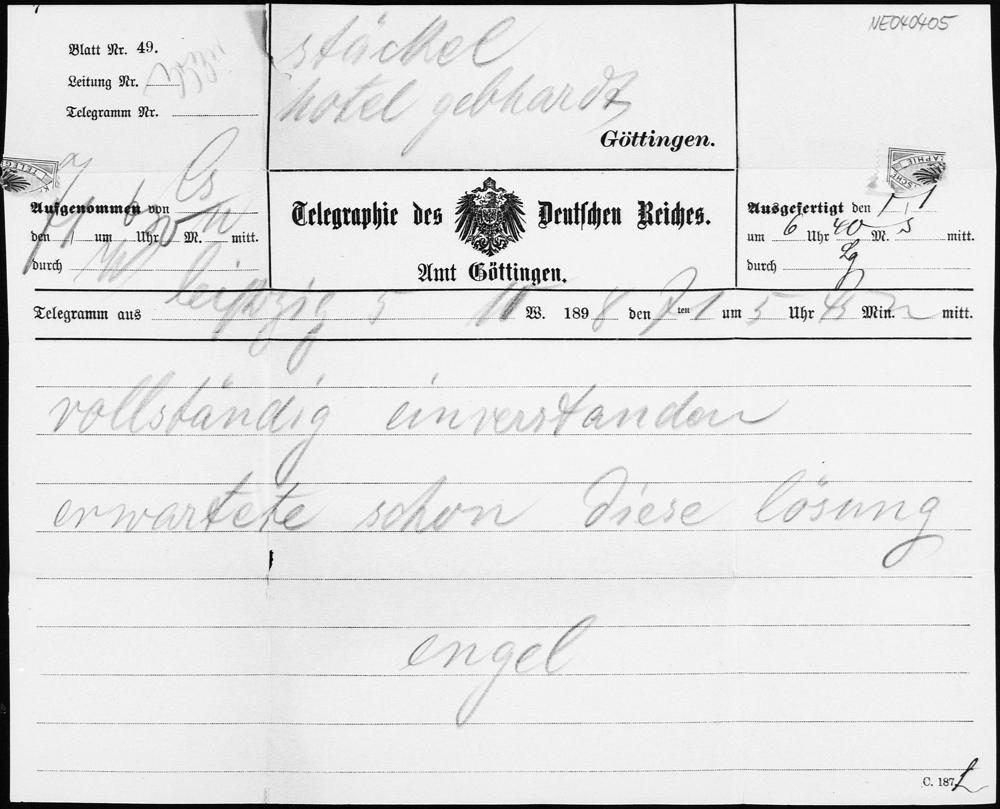 NE040405
Blatt Nr. 49.
Leitung Nr.
Telegramm Nr.
stäckel
hotel gebhardt
Göttingen.
Aufgenommen von
den 7/1 um 6 Uhr 20 M. mitt.
durch
Telegraphie des Deutschen Reiches.
Amt Göttingen.
Ausgefertigt den 7/1
um 6 Uhr 40 M. mitt.
durch Lg
Telegramm aus leipzig 5 10 W. 1898 den 7 ten 1 um 5 Uhr 45 Min. n mitt.
vollständig einverstanden
erwartete schon diese lösung
engel
C. 187